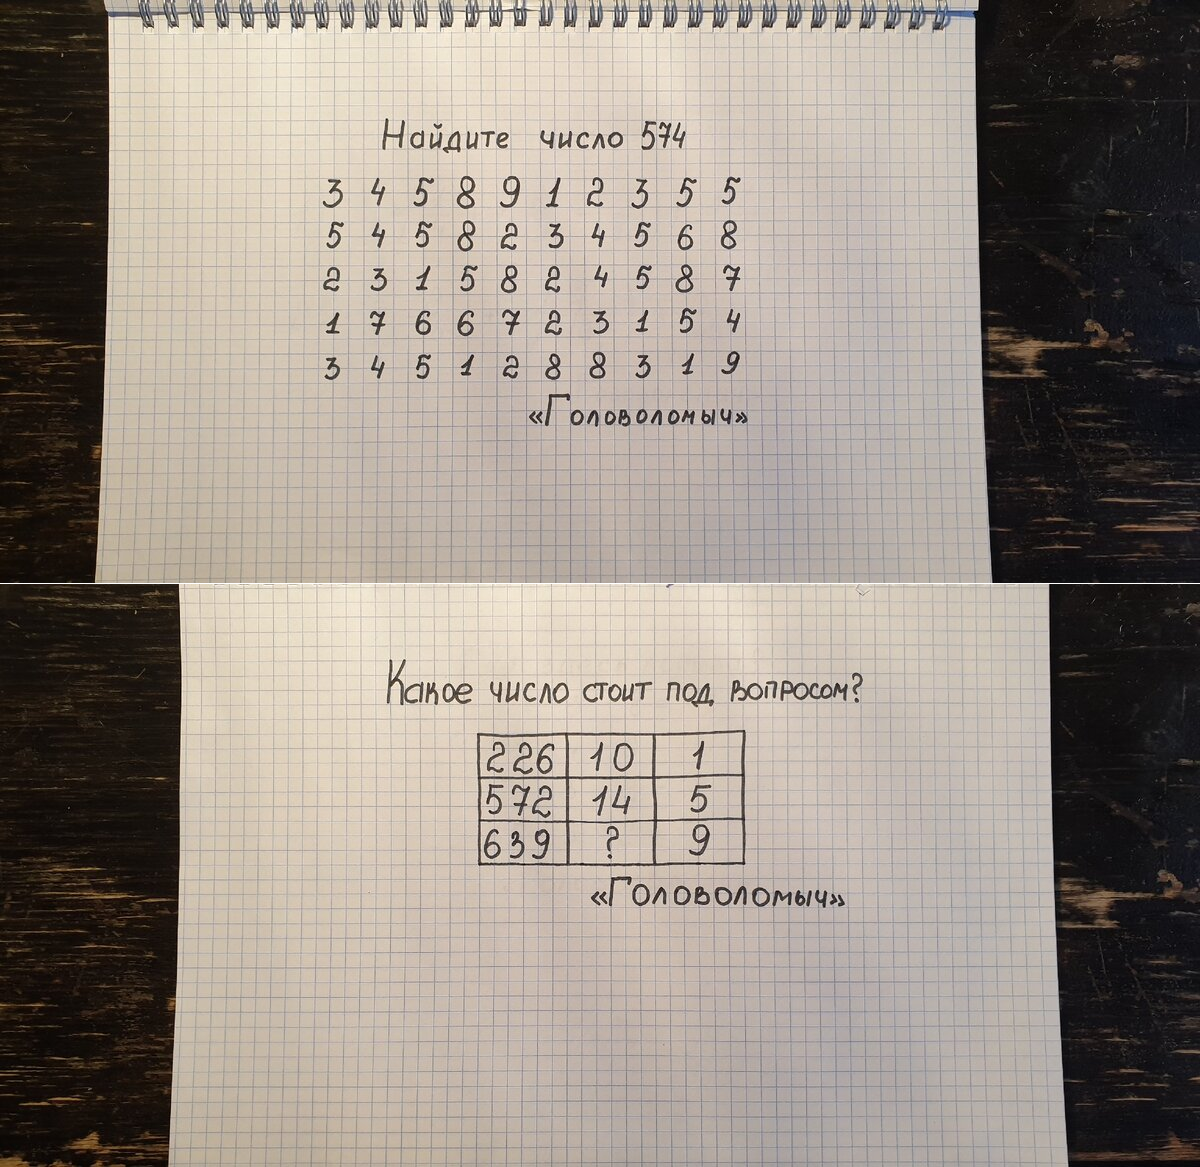 Найдите число 574
3 4 5 8 9 1 2 3 5 5
5 4 5 8 2 3 4 5 6 8
2 3 1 5 8 2 4 5 8 7
1 7 6 6 7 2 3 1 5 4
3 4 5 1 2 8 8 3 1 9
«Головоломыч»
Какое число стоит под вопросом?
226 10 1
572 14 5
639 ? 9
«Головоломыч»